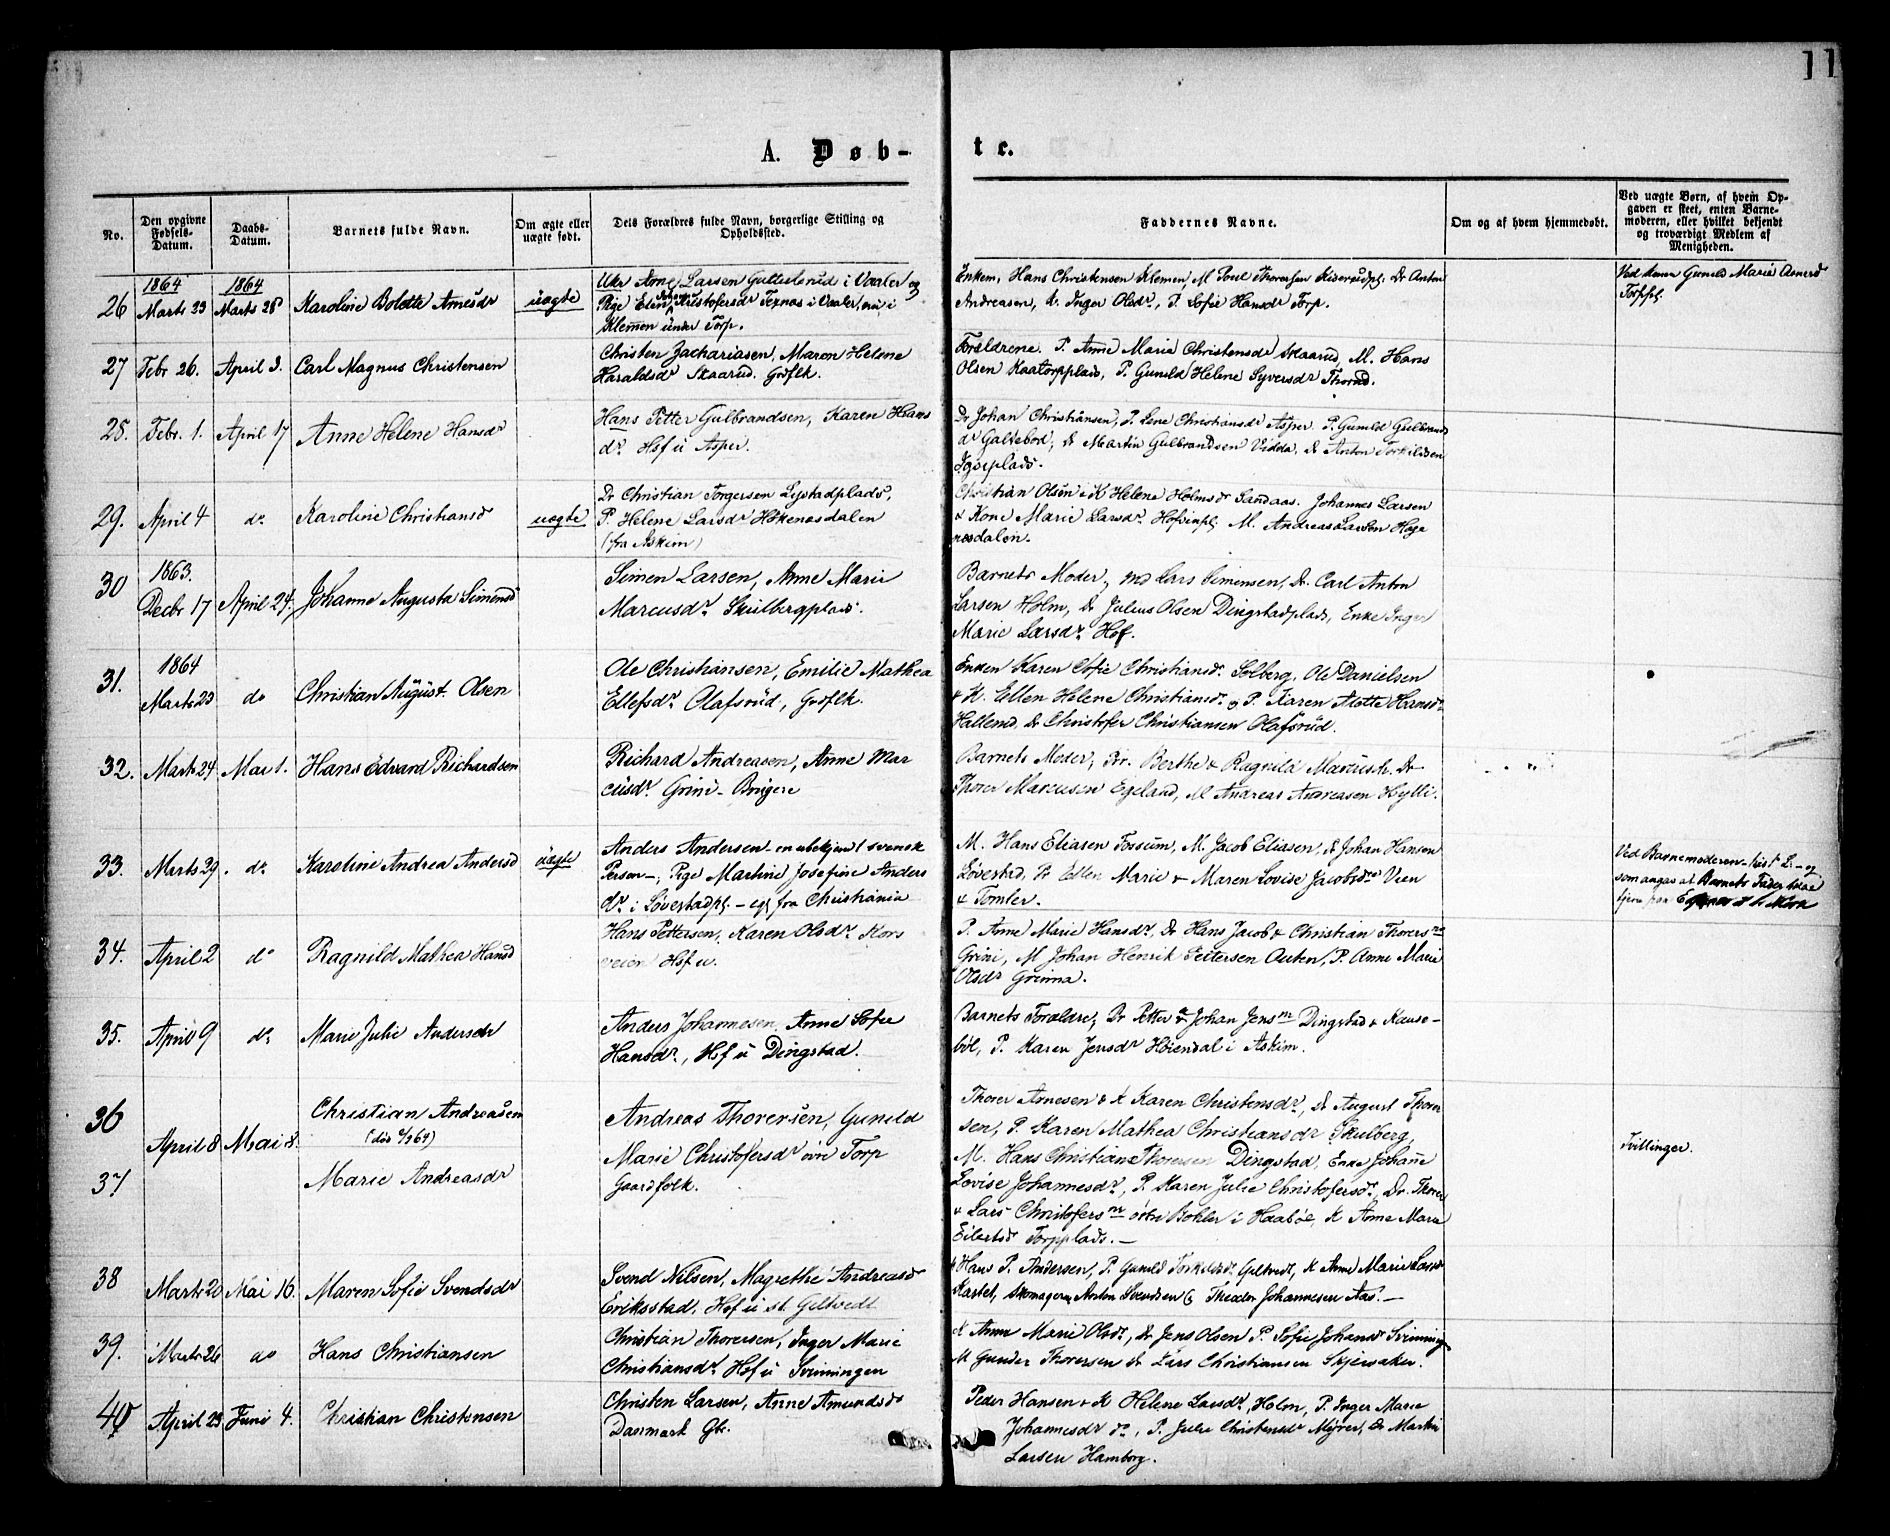 11
A. Døb-
te.
No.
Den opgivne
Fødsels-
Datum.
Daabs-
Datum.
Barnets fulde Navn.
Om ægte eller
uægte født.
Dets Forældres fulde Navn, borgerlige Stilling og
Opholdssted.
Faddernes Navne.
Om og af hvem hjemmedøbt.
Ved uægte Børn, af hvem Op-
gaven er skeet, enten Barne-
moderen, eller hvilket bekjendt
og troværdigt Medlem af
Menigheden.
26
1864
Marts 23
1864
Marts 28
Karoline Bolette Arnesdr
uægte
Ukr Arne Larsen Guttesrud i Vaaler og
Pige Elen Kristofersdr Texnæs i Vaaler, nu i
Klemon under Torp.
Enkem. Hans Christensen Klemen, M Poul Thoresen Dr Anton
Andreasen, K. Inger Olsdr, P. Sofie Hansdr Torp.
Ved Gunild Marie
Torppl.
27
Febr 26.
April 3.
Carl Magnus Christensen
Christen Zachariasen, Maren Helene
Haraldsdr Skaarud. Grdflk.
Forældrene. P. Anne Marie Christensdr Skaarud, M. Hans
Olsen Kaatorpplads, P. Gunild Helene Syversdr Thorud.
28.
Febr. 1.
April 17
Anne Helene Hansdr
Hans Petter Gulbrandsen, Karen Hans
dr. Hsf u Asper.
Dr Johan Christiansen, P. Lene Christiansdr Asper. P. Gunild Gulbrands
dr Galtebod, Dr Martin Gulbrandsen Vidda, Dr Anton Torkildsen
29.
April 4
do
Karoline Christiansd
uægte
Dr Christian Torgersen Lystadplads,
P. Helene Larsdr Hökenæsdalen
(fra Askim)
Christian Olsen & K Helene Holmsdr Sandaas. Johannes Larsen
& Kone Marie Larsdr. Hofvinpl. M. Andreas Larsen Høge
næsdalen.
30
1863.
Decbr 17
April 24.
Johanne Augusta Simensd
Simen Larsen, Anne Marie
Marcusdr. Skulbergplads.
Barnets Moder, M Lars Simensen, Dr. Carl Anton
Larsen Holm, Dr Julius Olsen Dingstadplads, Enke Inger
Marie Larsdr. Hof.
31.
1864
Marts 23
do
Christian August. Olsen
Ole Christiansen, Emilie Mathea
Ellefsdr. Olafsrud, Grdflk.
Enken Karen Sofie Christiansdr. Solberg, Ole Danielsen
& K. Ellen Helene Christiansdr. og P. Karen Hansdr
Dr Christofer Christiansen Olafsrud.
32.
Marts 24
Mai 1.
Hans Edvard Richardsen
Richard Andreasen, Anne Mar
cusdr. Grini - Brugere
Barnets Moder, Pr. Berthe & Ragnild Marcusdr. Dr
Thorer Marcusen Egeland, M Andreas Andreasen Hylli.
33.
Marts 29.
do
Karoline Andrea Andersd
uægte
Anders Andersen - en ubekjendt svensk
Person -, Pige Martine Josefine Anders
dr. i Løvestadpl. - egl fra Christiania
M. Hans Eliasen Fossum, M. Jacob Eliasen, Dr Johan Hansen
Løvestad, P. Ellen Marie & Maren Lovise Jacobsdr Veen
& Tomter.
Ved Barnemoderen og
som angav at Barnets Fader
34.
April 2
do
Ragnild Mathea Hansd
Hans Pettersen, Karen Olsdr. Kors
veien Hsf u.
P. Anne Marie Hansdr, Dr Hans Jacob & Christian Thorers ne
Grini, M Johan Henrik Pettersen Auten, P. Anne Marie
Olsdr Grinna.
35.
April 9
do
Marie Julie Andersdr
Anders Johannesen, Anne Sofie
Hansdr., Hsf u Dingstad.
Barnets Forældre, Dr Petter & Johan Jensne Dingstad & Kause-
böl, P. Karen Jensdr Høiendal i Askim.
36
April 8
Mai 8.
Christian Andreasen
37
Marie Andreasdr
Andreas Thorersen, Gunild
Marie Christofersdr övre Torp
Gaardfolk.
Thorer Arnesen & K Karen Christensdr, Dr August Thorer
sen, P. Karen Mathea Christiansdr Skulberg,
M. Hans Christian Thorersen Dingstad, Enke Johanne
Lovise Johannesdr, P. Karen Julie Christofersdr, Dr. Thorer
& Lars Christofersne östre Bohler i Haabøl, K Anne Marie
Eilertsdr Torpplads. -
Tvillinger.
38
Marts 20
Mai 16.
Maren Sofie Svendsdr
Svend Nilsen, Magrethe Andreasdr
Eriksstad, Hsf u st. Geltvedt
Hans P. Andersen, P. Gunild Torkildsdr. Geltvedt, K Anne Marie Larsd
Kastet, Skomagerne Anton Svendsen & Theodor Johannesen Aas. -
39.
Marts 26
do
Hans Christiansen
Christian Thorersen, Inger Marie
Christiansdr. Hsf u Svenningen
K Anne Marie Olsdr, Dr Jens Olsen P. Sofie Johansdr Svinning
M Gunder Thorersen Dr Lars Christiansen Skjersaker.
40
April 23
Juni 4.
Christian Christensen
Christen Larsen, Anne Amundsdr
Danmark Gbr.
Peder Hansen & K Helene Larsdr, Holm, P. Inger Marie
Johannesdr do, P. Julie Christensdr Myrer, Dr Martin
Larsen Hamborg.